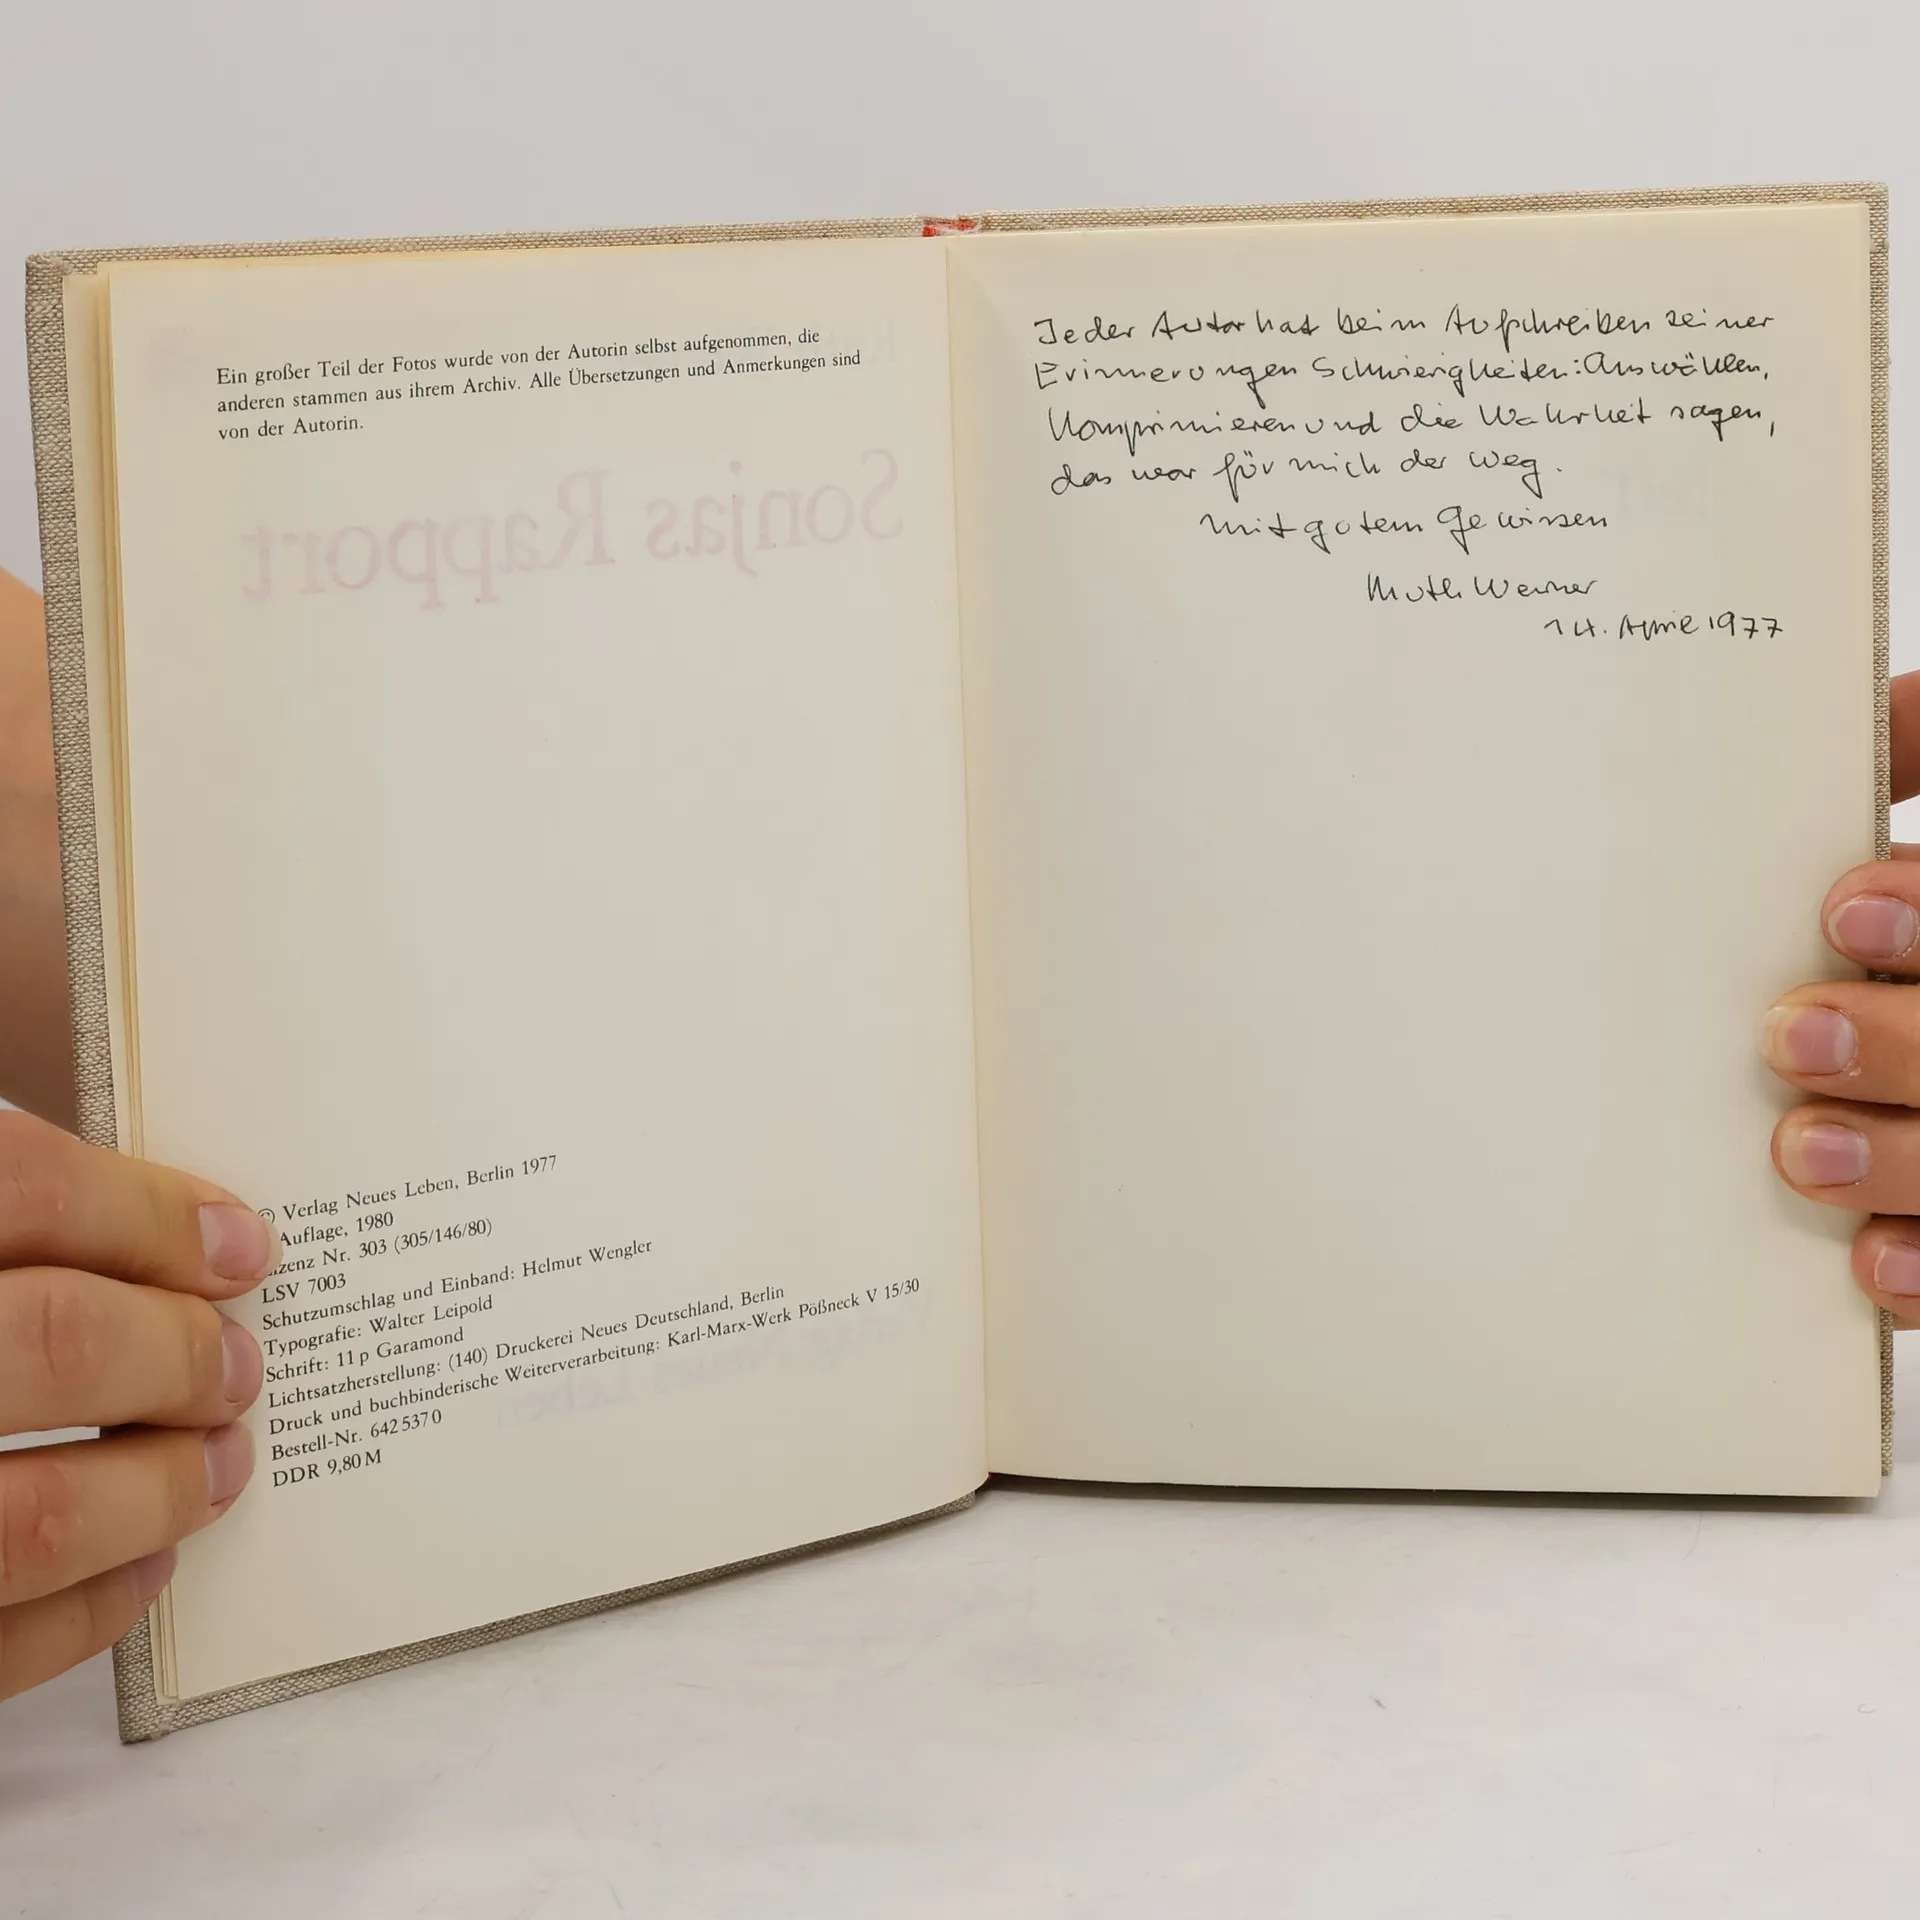 Ein großer Teil der Fotos wurde von der Autorin selbst aufgenommen, die
anderen stammen aus ihrem Archiv. Alle Übersetzungen und Anmerkungen sind
von der Autorin.
Sonjas Rapport
© Verlag Neues Leben, Berlin 1977
Auflage, 1980
Nr. 303 (305/146/80)
LSV 7003
Schutzumschlag und Einband: Helmut Wengler
Typografie: Walter Leipold
Schrift: 11 p Garamond
Lichtsatzherstellung: (140) Druckerei Neues Deutschland, Berlin
Druck und buchbinderische Weiterverarbeitung: Karl-Marx-Werk Pößneck V 15/30
Bestell-Nr. 642 537 0
DDR 9,80 M
Jeder Autor hat beim Aufschreiben seiner
Erinnerungen Schwierigkeiten: Auswählen,
Komprimieren und die Wahrheit sagen,
das war für mich der Weg.
mit gutem Gewissen
Ruth Werner
14. April 1977